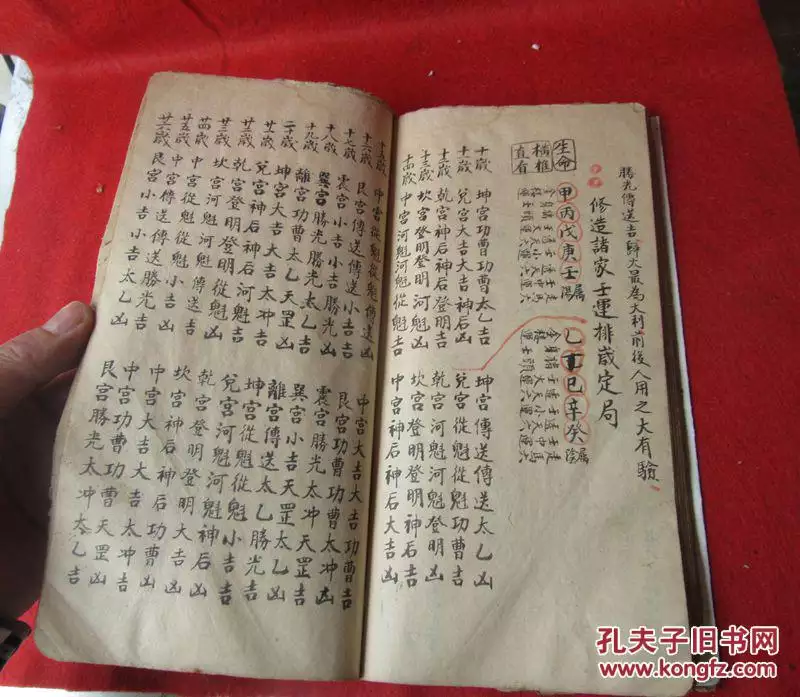 勝光傳送吉歸大最為大利前後人用之大有驗
修造諸家壬運排歲定局
生命 甲丙戊庚壬屬陽 乙丁巳辛癸屬陰
橫推
直有
十歲 坤宮功曹功曹太乙吉 坤宮傳送傳送太乙凶
十一歲 兌宮大吉大吉神后凶 兌宮從魁從魁功曹吉
十二歲 乾宮神后神后登明吉 乾宮河魁河魁登明凶
十三歲 坎宮登明登明河魁凶 坎宮登明登明神后吉
十四歲 中宮河魁河魁從魁吉 中宮神后神后大吉凶
十五歲 中宮從魁從魁傳送凶 中宮大吉大吉功曹吉
十六歲 艮宮傳送傳送小吉吉 艮宮功曹功曹太冲凶
十七歲 震宮小吉小吉勝光凶 震宮勝光太冲天罡吉
十八歲 巽宮勝光勝光太乙吉 巽宮小吉天罡太乙凶
十九歲 離宮功曹太乙天罡凶 離宮傳送太乙勝光吉
二十歲 坤宮大吉大吉太冲吉 坤宮從魁從魁小吉凶
廿一歲 兌宮神后神后 兌宮河魁河魁神后吉
廿二歲 乾宮登明登明 乾宮登明登明大吉凶
廿三歲 坎宮河魁河魁傳送吉 坎宮神后神后功曹吉
廿四歲 中宮從魁從魁小吉凶 中宮大吉大吉太冲凶
廿五歲 中宮傳送傳送勝光吉 中宮功曹功曹天罡吉
廿六歲 艮宮小吉小吉太乙凶 艮宮勝光太冲太乙吉
孔夫子旧书网
www.kongfz.com